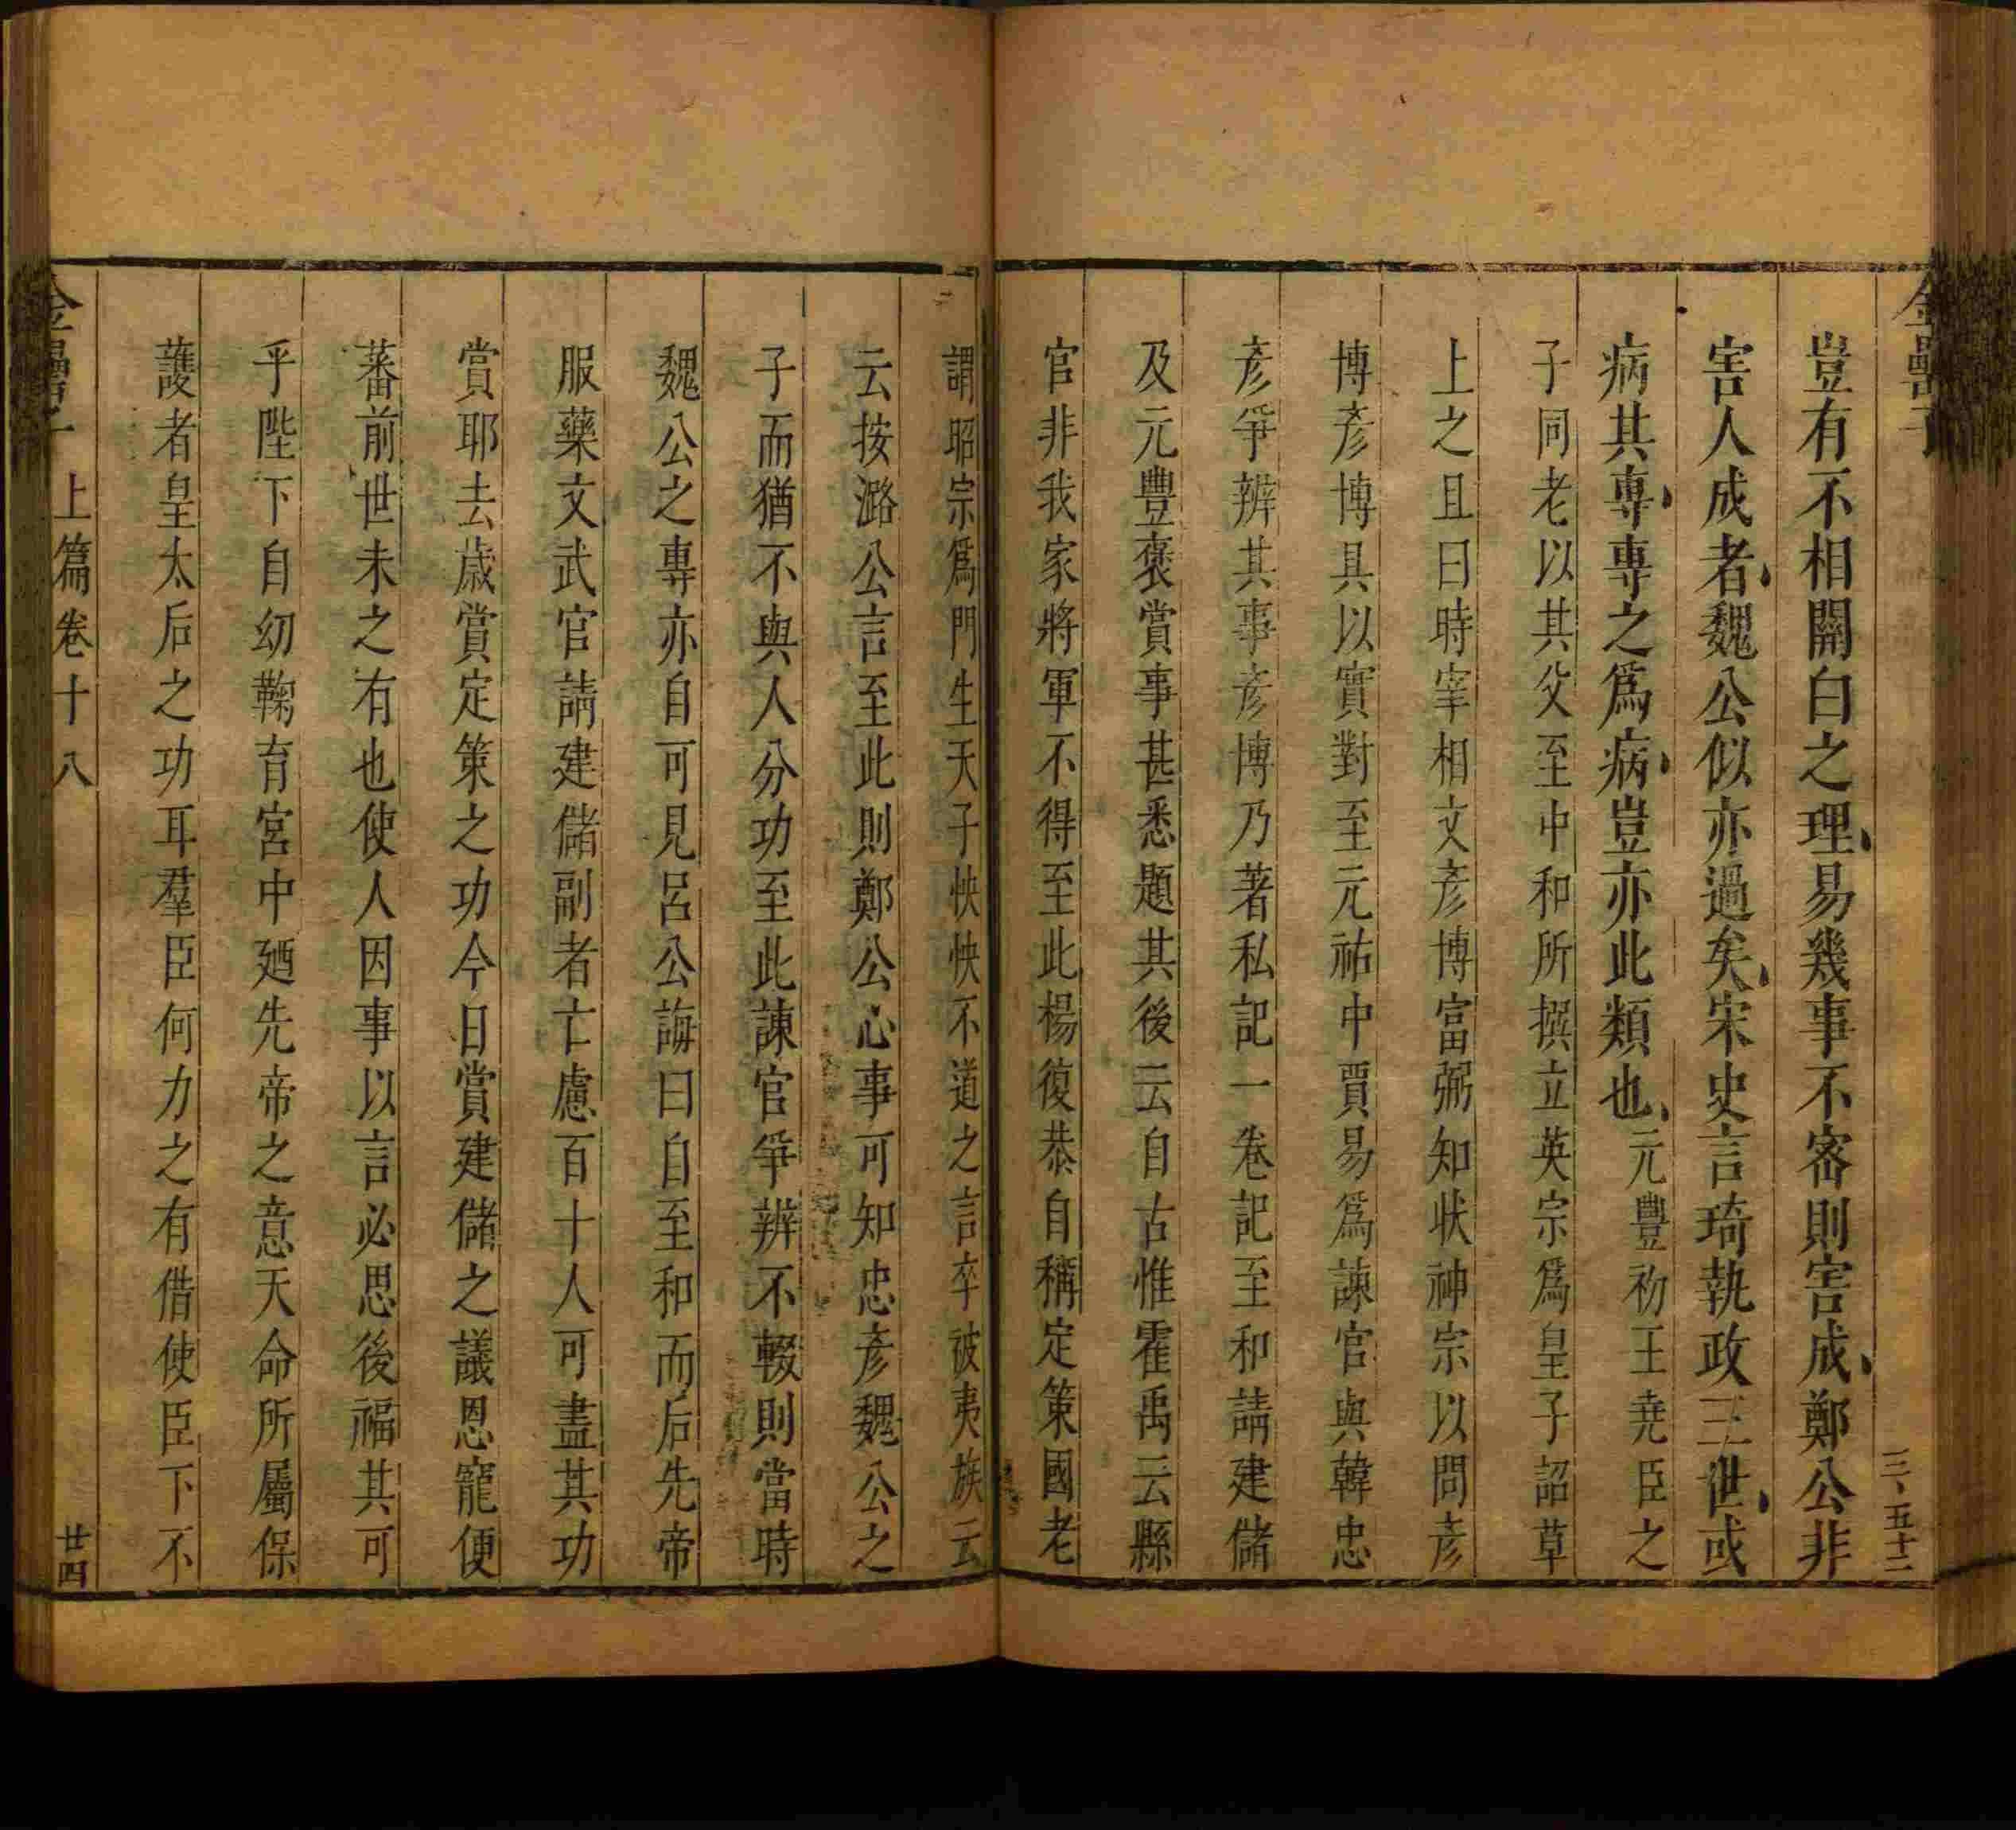 金罍子
三、五十二
豈有不相關白之理易幾事不密則害成鄭公非
害人成者魏公似亦過矣宋史言琦執政三世或
病其專專之爲病豈亦此類也元豐初王堯臣之
子同老以其父至中和所撰立英宗爲皇子詔草
上之且曰時宰相文彥博富弼知狀神宗以問彥
博彥博具以實對至元祐中賈易爲諫官與韓忠
彥爭辨其事彥博乃著私記一卷記至和請建儲
及元豐褒賞事甚悉題其後云自古惟霍禹云縣
官非我家將軍不得至此楊復恭自稱定策國老
謂昭宗爲門生天子怏怏不道之言卒被夷族云
云按潞公言至此則鄭公心事可知忠彥魏公之
子而猶不與人分功至此諫官爭辨不輟則當時
魏公之專亦自可見呂公誨曰自至和而后先帝
服藥文武官請建儲副者亡慮百十人可盡其功
賞耶去歲賞定策之功今日賞建儲之議恩寵便
蕃前世未之有也使人因事以言必思後福其可
乎陛下自幼鞠育宮中廼先帝之意天命所屬保
護者皇太后之功耳羣臣何力之有借使臣下不
金罍子 上篇卷十八 廿四